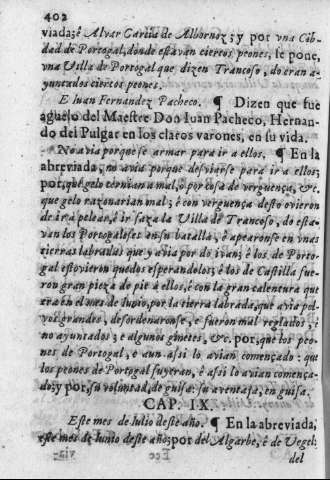 402
viada; è Alvar Garcia de Albornoz; y por vna Cib-
dad de Portogal, donde estavan ciertos peones, se pone,
vna Villa de Portogal que dizen Trancoso, do eran a-
yuntados ciertos peones.
E Iuan Fernandez Pacheco. ¶ Dizen que fue
aguelo del Maestre Don Iuan Pacheco, Hernan-
do del Pulgar en los claros varones, en su vida.
No avia porque se armar para ir a ellos. ¶ En la
abreviada, no avia porque desviarse para ir a ellos;
por, que gelo ternian a mal, ò por cosa de verguença, &c.
que gelo razonarian mal; è con verguença desto ovieron
de ir a pelear, è ir faza la Villa de Trancoso, do esta-
van los Portogaleses en su batalla, è apearonse en vnas
tierras labradas que y avia por do ivan; è los de Porto-
gal estovieron quedos esperandolos; è los de Castilla fue-
ron gran pieza de pie a ellos, è con la gran calentura que
era en el mes de Iunio, por la tierra labrada, que avia pol-
vos grandes, desordenaronse, e fueron mal reglados, è
no ayuntados; e algunos ginetes, &c. por, que los peo-
nes de Portogal, e aun asi lo avian començado: que
los peones de Portogal fuyeran, è asi lo avian comença-
do; y por, su voluntad, de guisa: su aventaja, en guisa.
CAP. IX.
Este mes de Iulio deste año. ¶ En la abreviada,
este mes de Iunio deste año; por del Algarbe, è de Vegel:
del